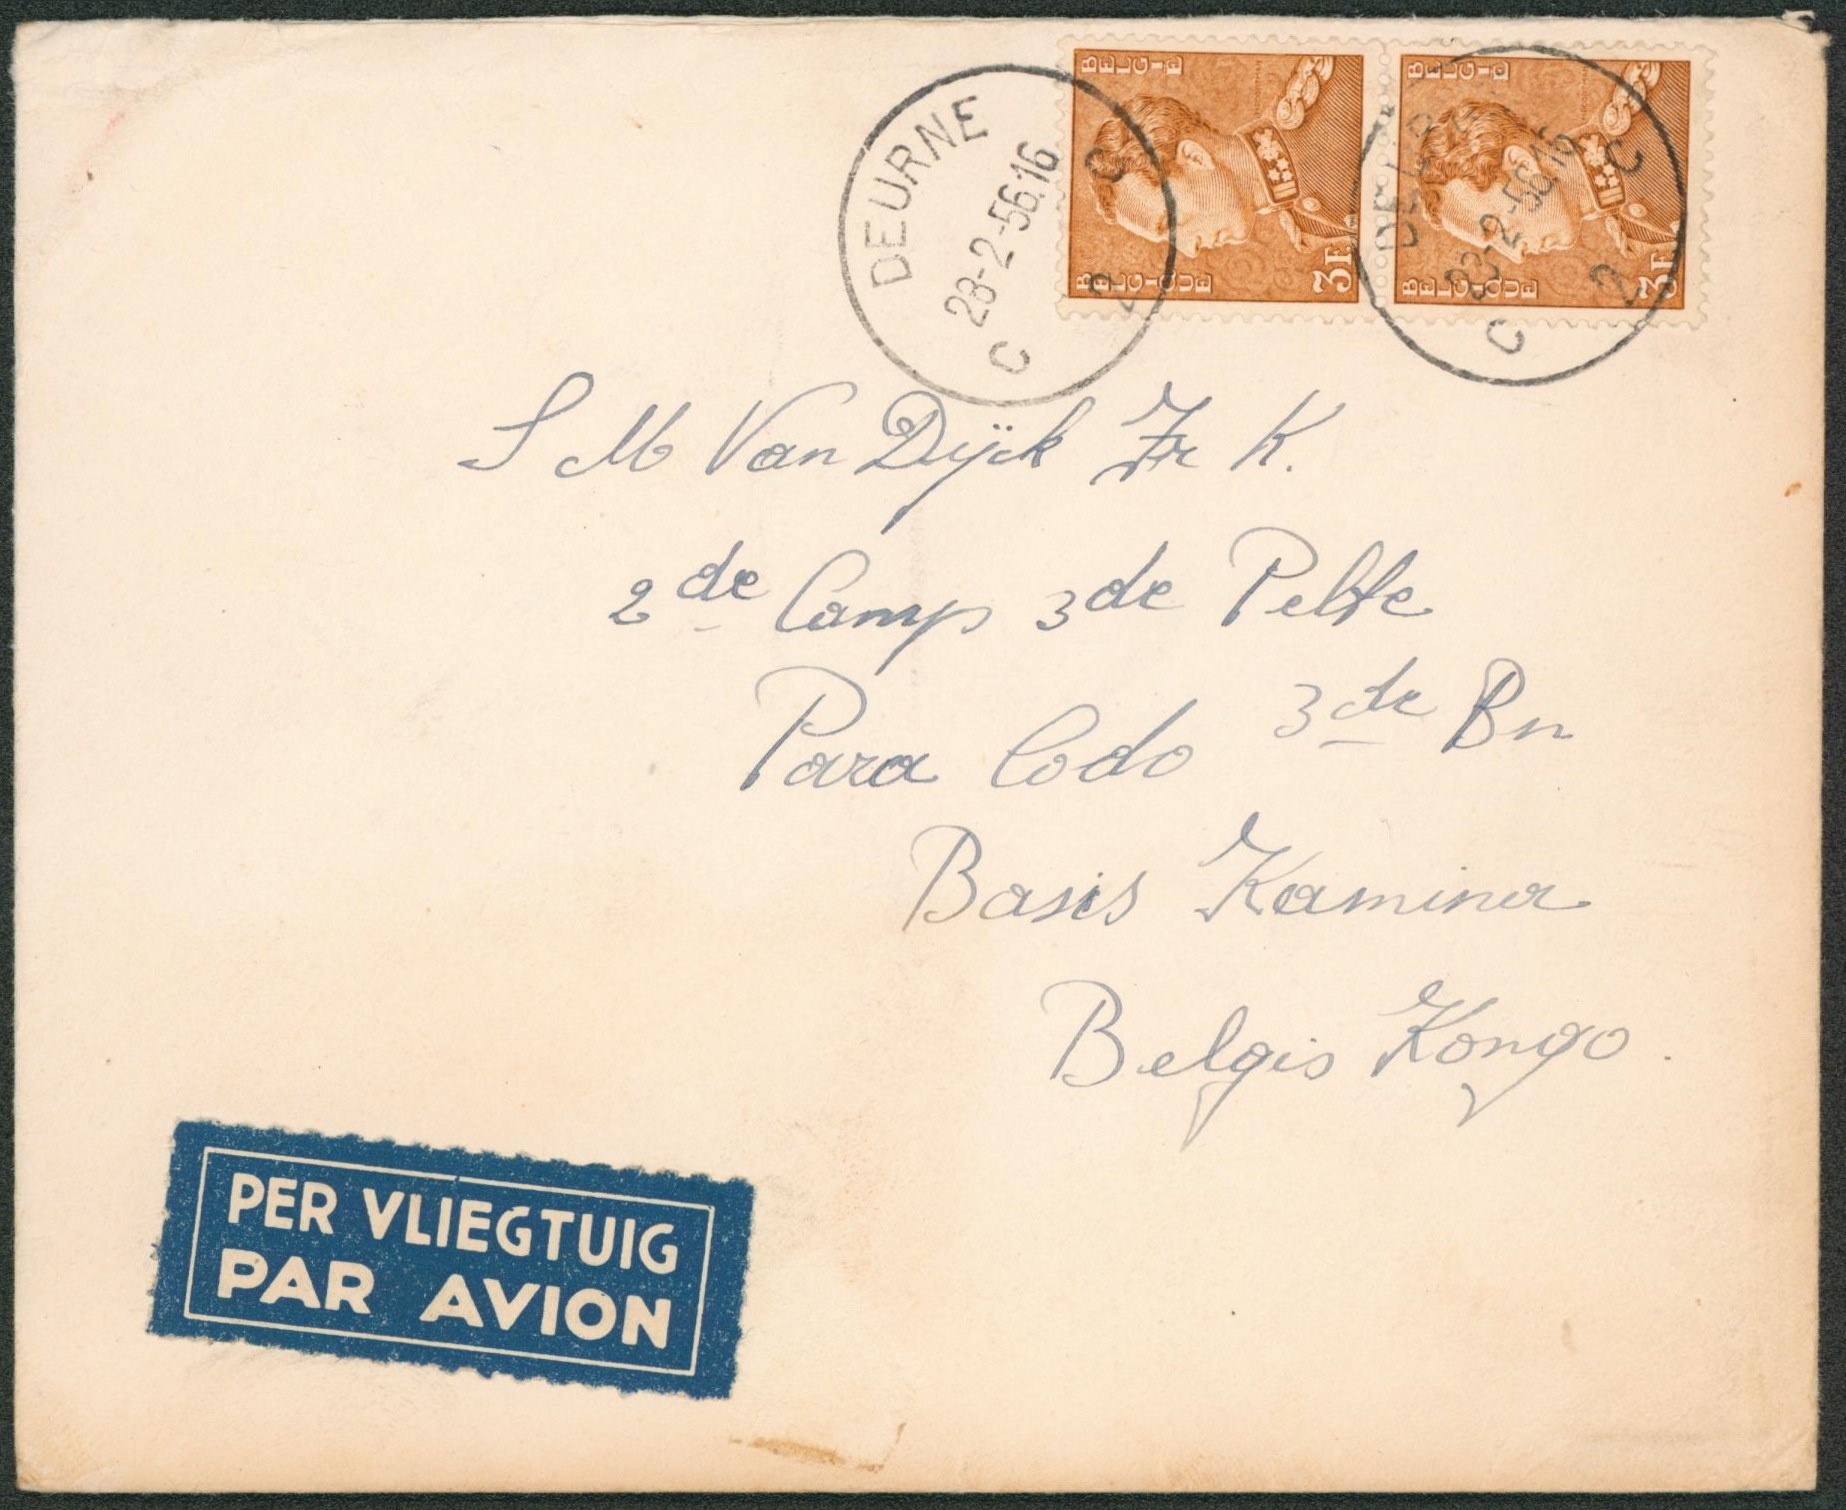 BELGIE
BELGIE
BELGIQUE
3F
BELGIQUE
3F
DEURNE
28-2-56.16
C C
2
DEURNE
28-2-56.16
C C
2
S M Van Dijck Fr K.
2de Comp 3de Pelte
Para Codo 3de Bn
Basis Kamina
Belgis Kongo.
PER VLIEGTUIG
PAR AVION